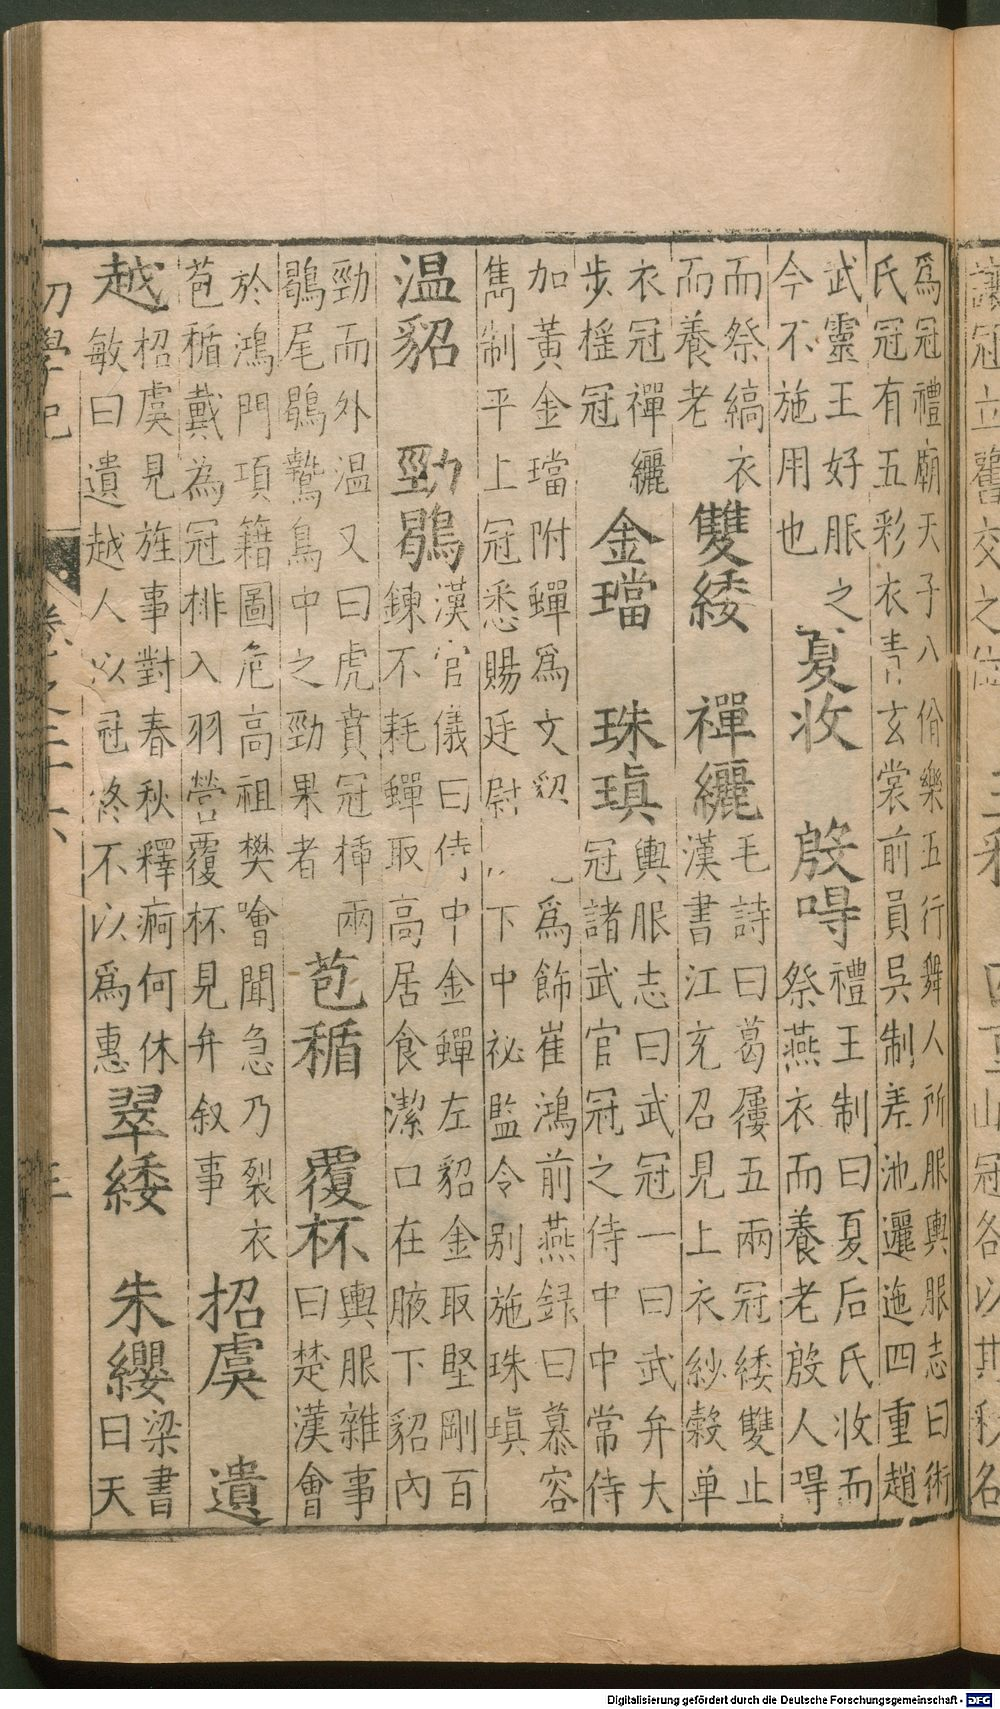 爲冠禮廟天子八佾樂五行舞人所服輿服志曰術
氏冠有五彩衣青玄裳前員吳制差池邐迤四重趙
武靈王好服之
今不施用也
夏收 殷冔
禮王制曰夏后氏收而
祭燕衣而養老殷人冔
而祭縞衣
而養老
雙緌 襌纚
毛詩曰葛屨五兩冠緌雙止
漢書江充召見上衣紗縠单
衣冠襌纚
步摇冠
金璫 珠瑱
輿服志曰武冠一曰武弁大
冠諸武官冠之侍中中常侍
加黃金璫附蟬爲文貂 爲飾崔鴻前燕録曰慕容
雋制平上冠悉賜廷尉 下中祕監令别施珠瑱
温貂 勁鶡
漢官儀曰侍中金蟬左貂金取堅剛百
鍊不耗蟬取高居食潔口在腋下貂内
勁而外温又曰虎賁冠揷兩
鶡尾鶡鷙鳥中之勁果者
苞楯 覆杯
輿服雜事
曰楚漢會
於鴻門項籍圖危高祖樊噲聞急乃裂衣
苞楯戴為冠排入羽營覆杯見弁叙事
招虞 遺
越
招虞見旌事對春秋釋痾何休
敏曰遺越人以冠終不以爲惠
翠緌 朱纓
梁書
曰天
Digitalisierung gefördert durch die Deutsche Forschungsgemeinschaft - DFG